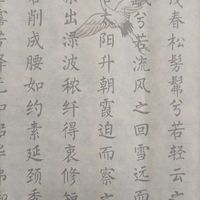 春松髣髴兮若轻云之
兮若流风之回雪远而
太阳升朝霞迫而察
出渌波秾纤得衷修短
削成腰如约素延颈秀